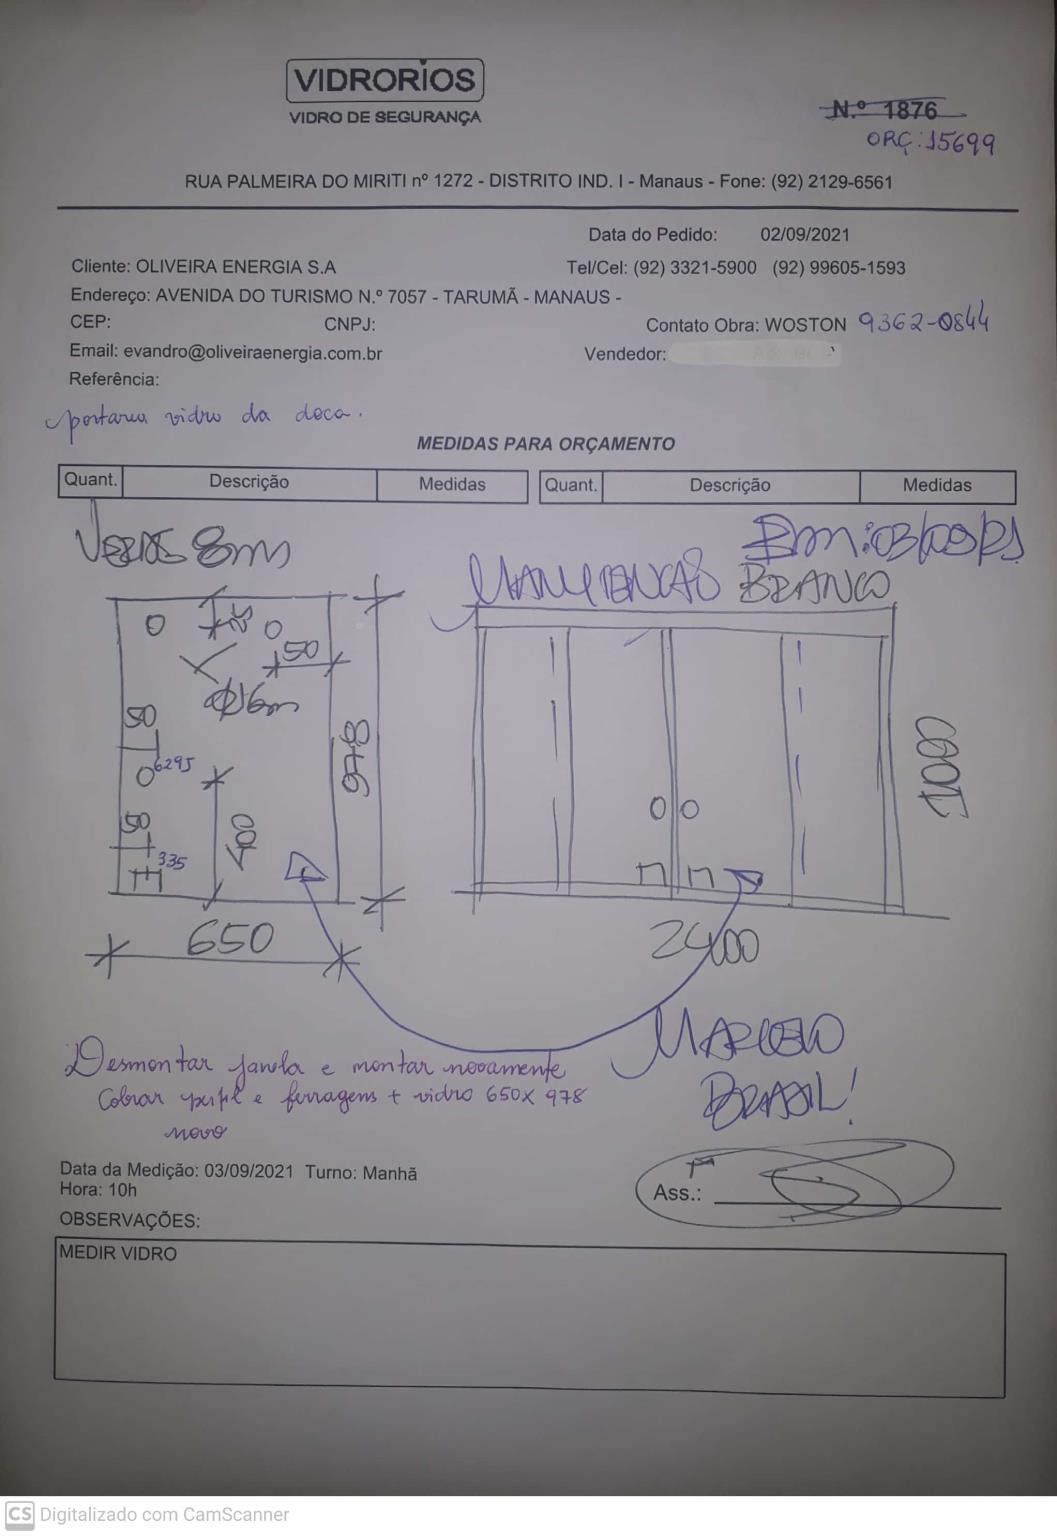 VIDRORIOS
VIDRO DE SEGURANÇA
N.º 1876
ORÇ:15699
RUA PALMEIRA DO MIRITI nº 1272 - DISTRITO IND. I - Manaus - Fone: (92) 2129-6561
Data do Pedido: 02/09/2021
Cliente: OLIVEIRA ENERGIA S.A Tel/Cel: (92) 3321-5900 (92) 99605-1593
Endereço: AVENIDA DO TURISMO N.º 7057 - TARUMÃ - MANAUS -
CEP: CNPJ: Contato Obra: WOSTON 9362-0844
Email: evandro@oliveiraenergia.com.br Vendedor:
Referência:
portaria vidro da doca.
MEDIDAS PARA ORÇAMENTO
Quant. Descrição Medidas Quant. Descrição Medidas
8m
Em:03/09/21
MANUTENCAO BRANCO
50
16m
50
6295
978
1000
50
400
335
650
2400
MARCELO
BRASIL!
Desmontar janela e montar novamente
Cobrar perfil e ferragens + vidro 650x 978
novo
Data da Medição: 03/09/2021 Turno: Manhã
Hora: 10h
Ass.:
OBSERVAÇÕES:
MEDIR VIDRO
CS Digitalizado com CamScanner